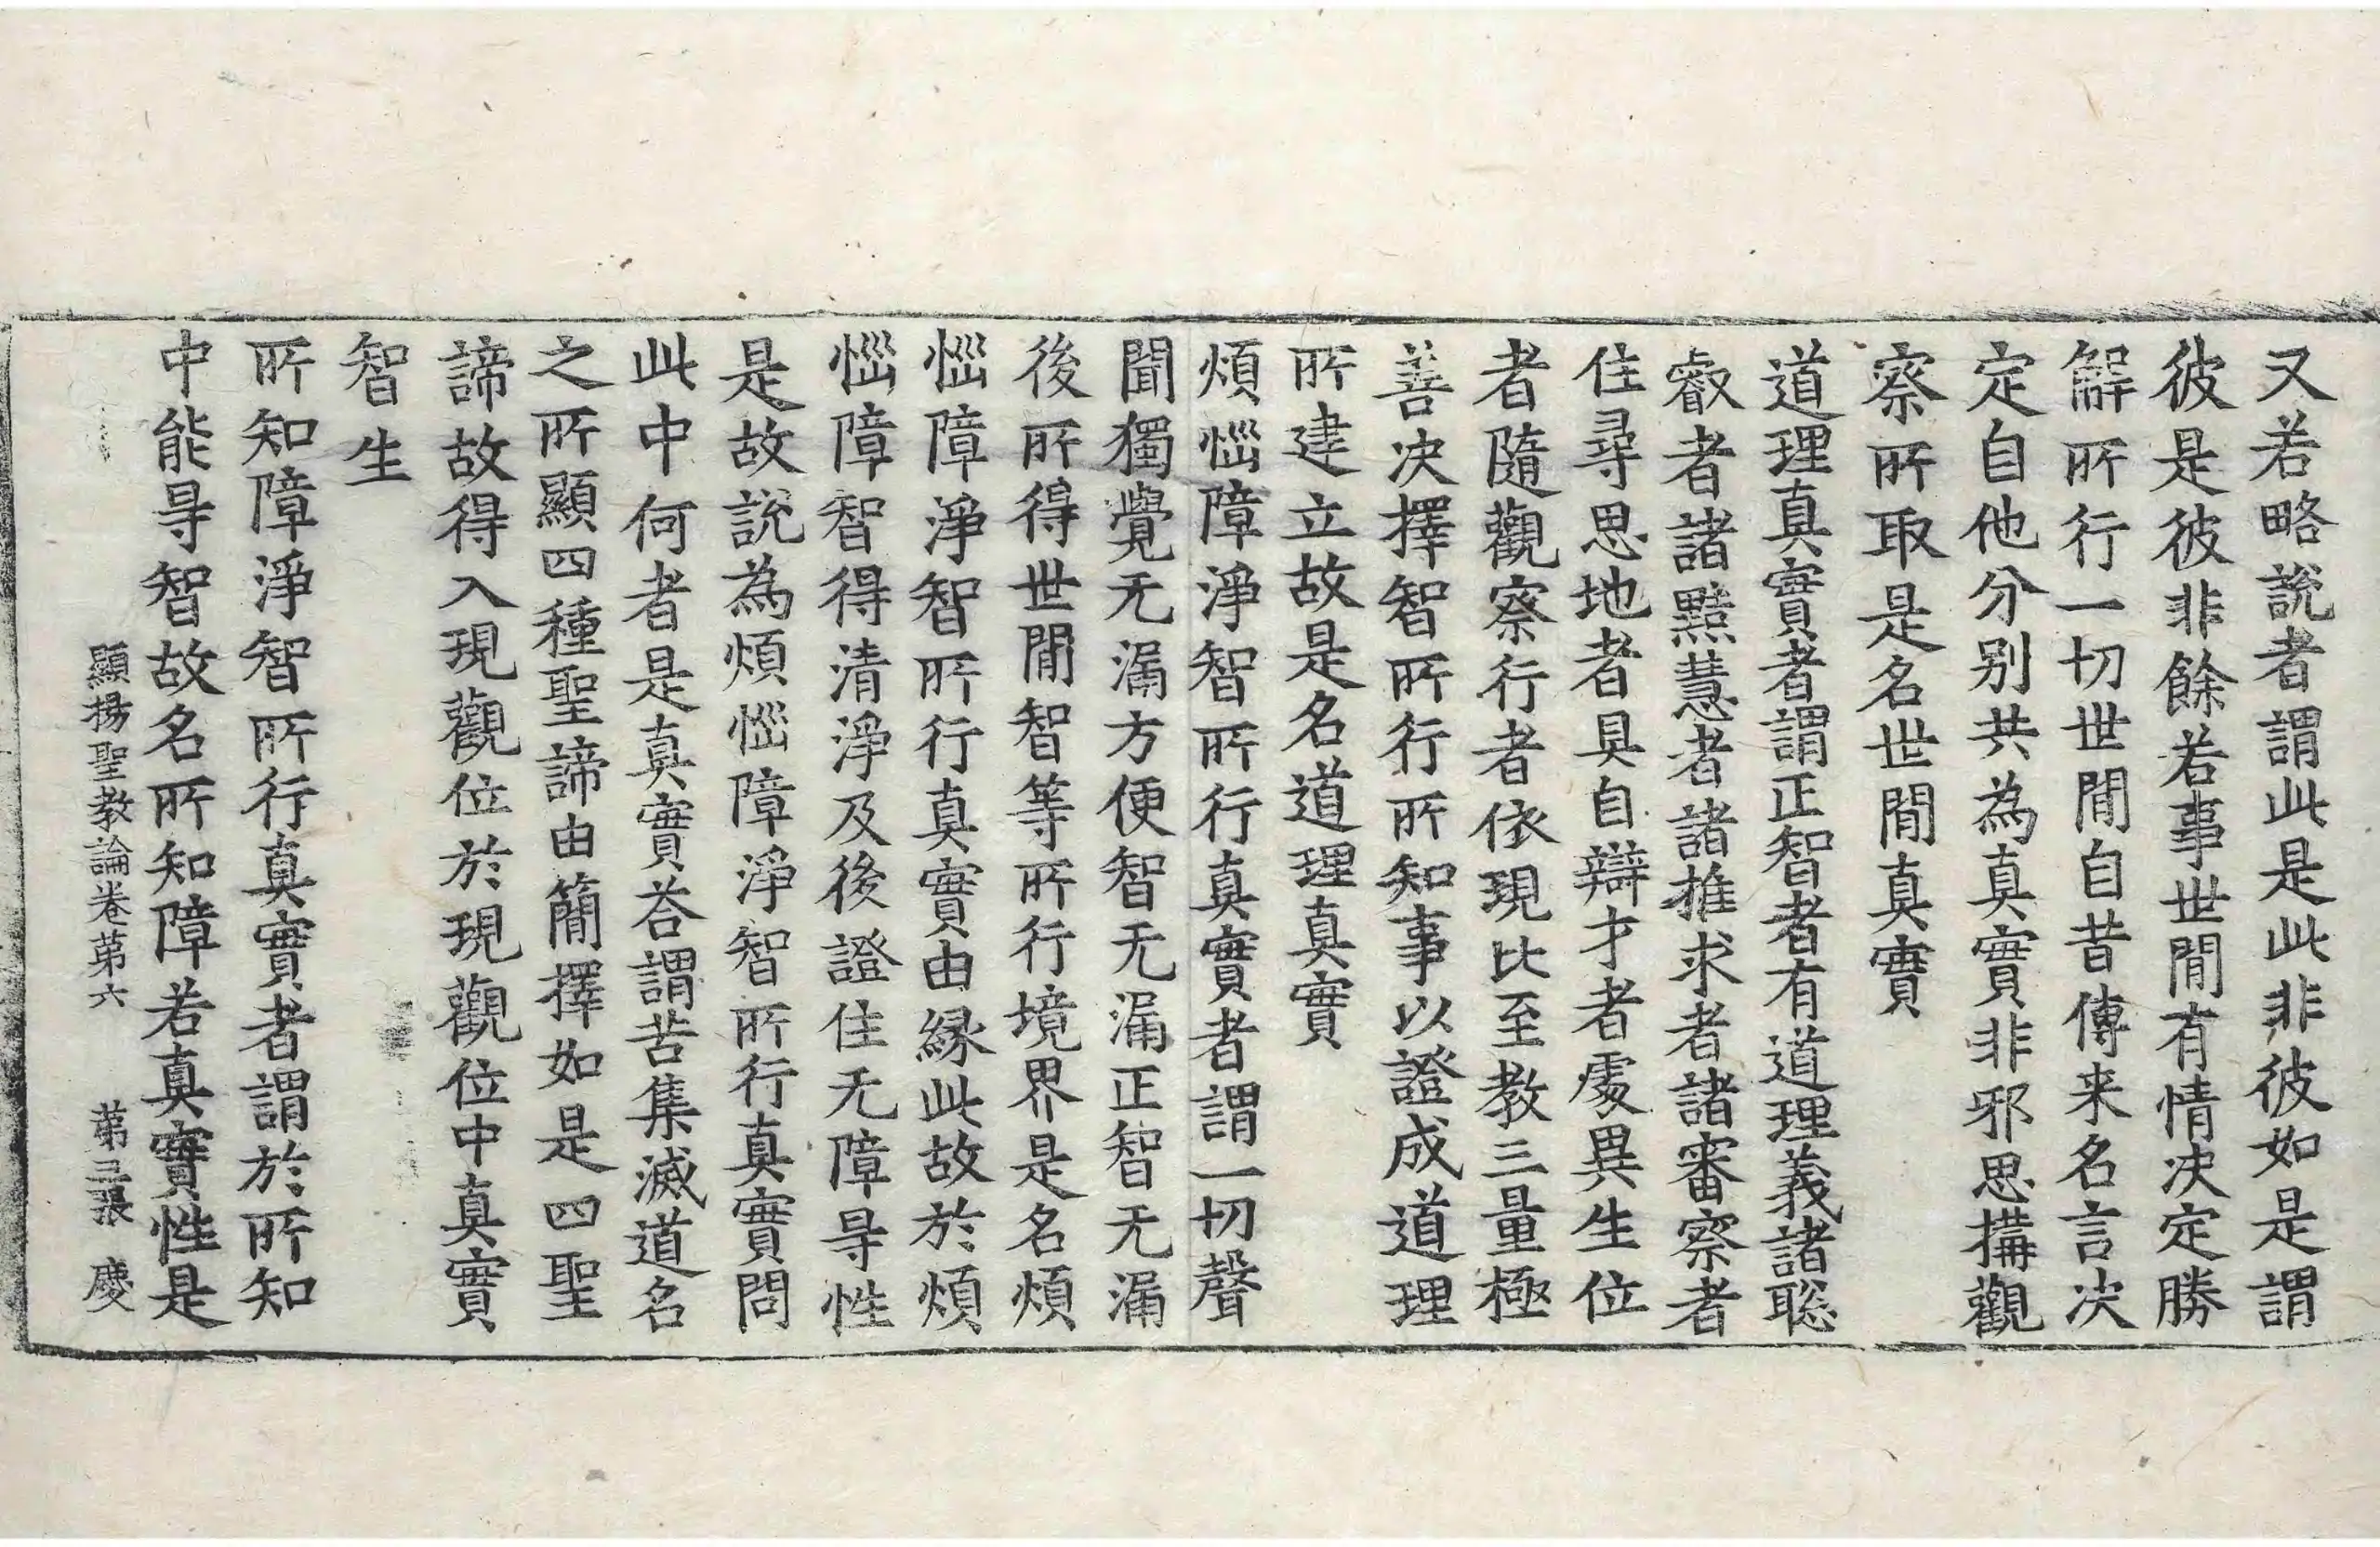 又若略說者謂此是此非彼如是謂
彼是彼非餘若事世閒有情决定勝
解所行一切世閒自昔傳来名言决
定自他分别共為真實非邪思搆觀
察所取是名世閒真實
道理真實者謂正智者有道理義諸聡
叡者諸黠慧者諸推求者諸審察者
住尋思地者具自辯才者處異生位
者隨觀察行者依現比至教三量極
善决擇智所行所知事以證成道理
所建立故是名道理真實
煩惱障淨智所行真實者謂一切聲
聞獨覺无漏方便智无漏正智无漏
後所得世閒智等所行境界是名煩
惱障淨智所行真實由緣此故於煩
惱障智得清淨及後證住无障㝵性
是故說為煩惱障淨智所行真實問
此中何者是真實荅謂苦集滅道名
之所顯四種聖諦由簡擇如是四聖
諦故得入現觀位於現觀位中真實
智生
所知障淨智所行真實者謂於所知
中能㝵智故名所知障若真實性是
顯揚聖教論卷苐六 苐三張 慶